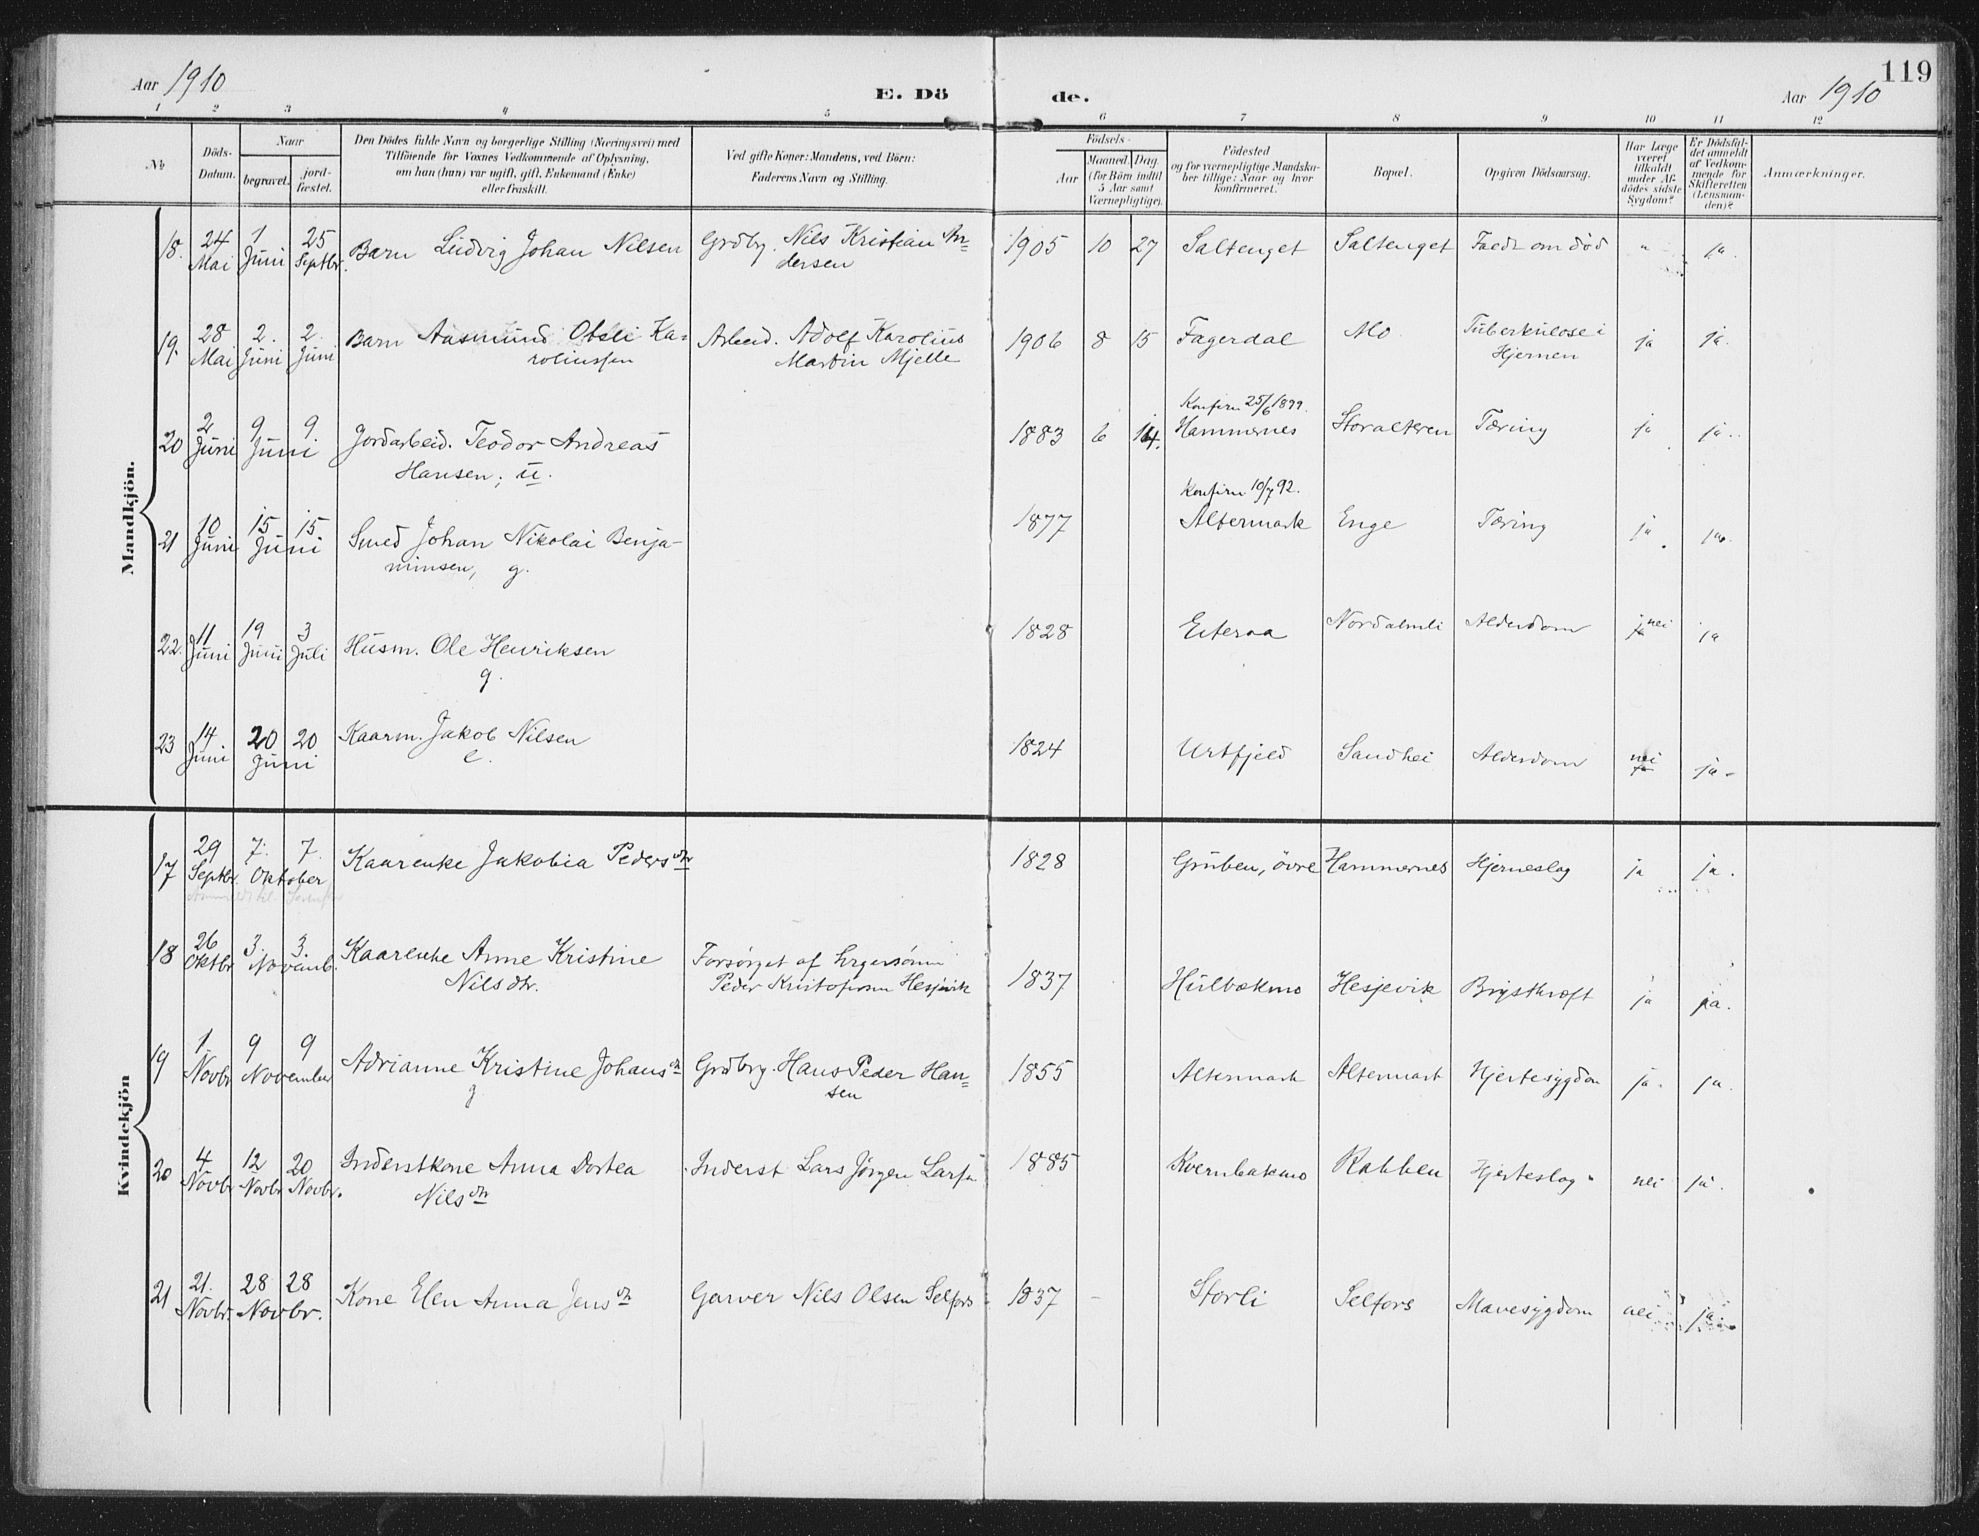 119
Aar 1910
E. Dö de.
Aar 1910
1 2 3 4 5 6 7 8 9 10 11 12
No.
Döds-Datum.
Naar
begravet.
jord-fæstet.
Den Dödes fulde Navn og borgerlige Stilling (Næringsvei) med
Tilföiende for Voxnes Vedkommende af Oplysning,
om han (hun) var ugift, gift, Enkemand (Enke)
eller fraskilt.
Ved gifte Koner: Mandens, ved Börn:
Faderens Navn og Stilling.
Födsels-
Aar
Maaned. Dag.
(for Börn indtil
5 Aar samt
Værnepligtige).
Födested
og for værnepligtige Mandska-
ber tillige: Naar og hvor
konfirmeret.
Bopæl.
Opgiven Dödsaarsag.
Har Læge
været
tilkaldt
under Af-
dödes sidste
Sygdom?
Er Dödsfal-
det anmeldt
af Vedkom-
mende for
Skifteretten
(Lensman-
den)?
Anmærkninger.
Mandkjön.
18. 24 Mai 1 Juni 25 Septbr. Barn Ludvig Johan Nilsen Grdbr. Nils Kristian An=
dersen 1905 10 27 Saltenget Saltenget Faedt om død " ja.
19. 28 Mai 2. Juni 2. Juni Barn Aasmund Oteli Ka=
roliussen Arbeid. Adolf Karolius
Martin Mjelle 1906 8 15 Fagerdal Mo Tuberkulose i
Hjernen ja ja.
20 2 Juni 9 9 Juni Jordarbeid. Teodor Andreas
Hansen, u. 1883 6 14. Konfirm 25/6 1899.
Hammernes Storalteren Tæring ja ja.
21 10 Juni 15 15 Juni Smed Johan Nikolai Benja-
minsen, g. 1877 Konfirm 10/7 92.
Altermark Enge Tæring ja ja.
22. 11 Juni 19 Juni 3 Juli Husm. Ole Henriksen
g. 1828 Eiteraa Nordalmli Alderdom ja nei ja
23 14 Juni 20 20 Juni Kaarm. Jakob Nilsen
e. 1824 Urtfjeld Sandhei Alderdom nei ja ja.
Kvindekjön
17 29 Septbr. 7. 7. Oktober Kaarenke Jakobia Pedersdtr 1828 Gruben, övre Hammernes Hjerneslag ja ja.
18 26 Oktbr 3. 3. Novemb. Kaarenke Anne Kristine
Nilsdtr. Forsørget af
Peder Kristofersen Hesjevik 1837 Hulbækmo Hesjevik Brystkræft ja ja.
19 1. Novbr 9 9 November Adrianne Kristine Johansdtr
g Grdbrg. Hans Peder Han=
sen 1855 Altermark Altermark Hjertesygdom ja. ja.
20 4 Novbr 12 Novbr 20 Novbr. Inderstkone Anna Dortea
Nilsdtr Inderst Lars Jørgen Larsen 1885 Kvernbakmo Rabben Hjerteslag. nei ja.
21 21. Novbr. 28 28 Novbr. Kone Elen Anna Jensdtr Garver Nils Olsen Selfors 1837 - Storli Selfors Mavesygdom nei ja.